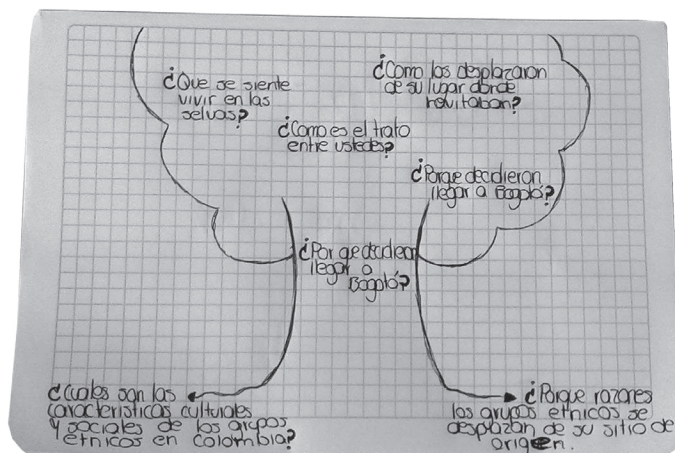 ¿Que se siente
vivir en las
selvas?
¿Como los desplazaron
de su lugar donde
hovitaban?
¿Como es el trato
entre ustedes?
¿Porqe decidieron
llegar a Bogotá?
¿Por qe decidieron
llegar a
Bogotá?
¿Cuales son las
caracteristicas culturales
y sociales de los grupos
etnicos en colombia?
¿Porque razones
los grupos etnicos se
desplazan de su sitio de
origen.